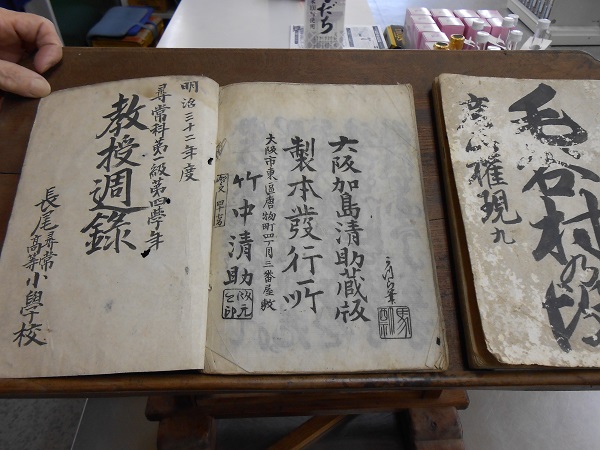 明治三十二年度
尋常科第一級第四學年
教授週錄
長尾尋常高等小學校
大阪加島清助藏版
製本發行所
大阪市東區唐物町四丁目三番屋敷
竹中清助
版元之印
毛谷村の
権現九
だち